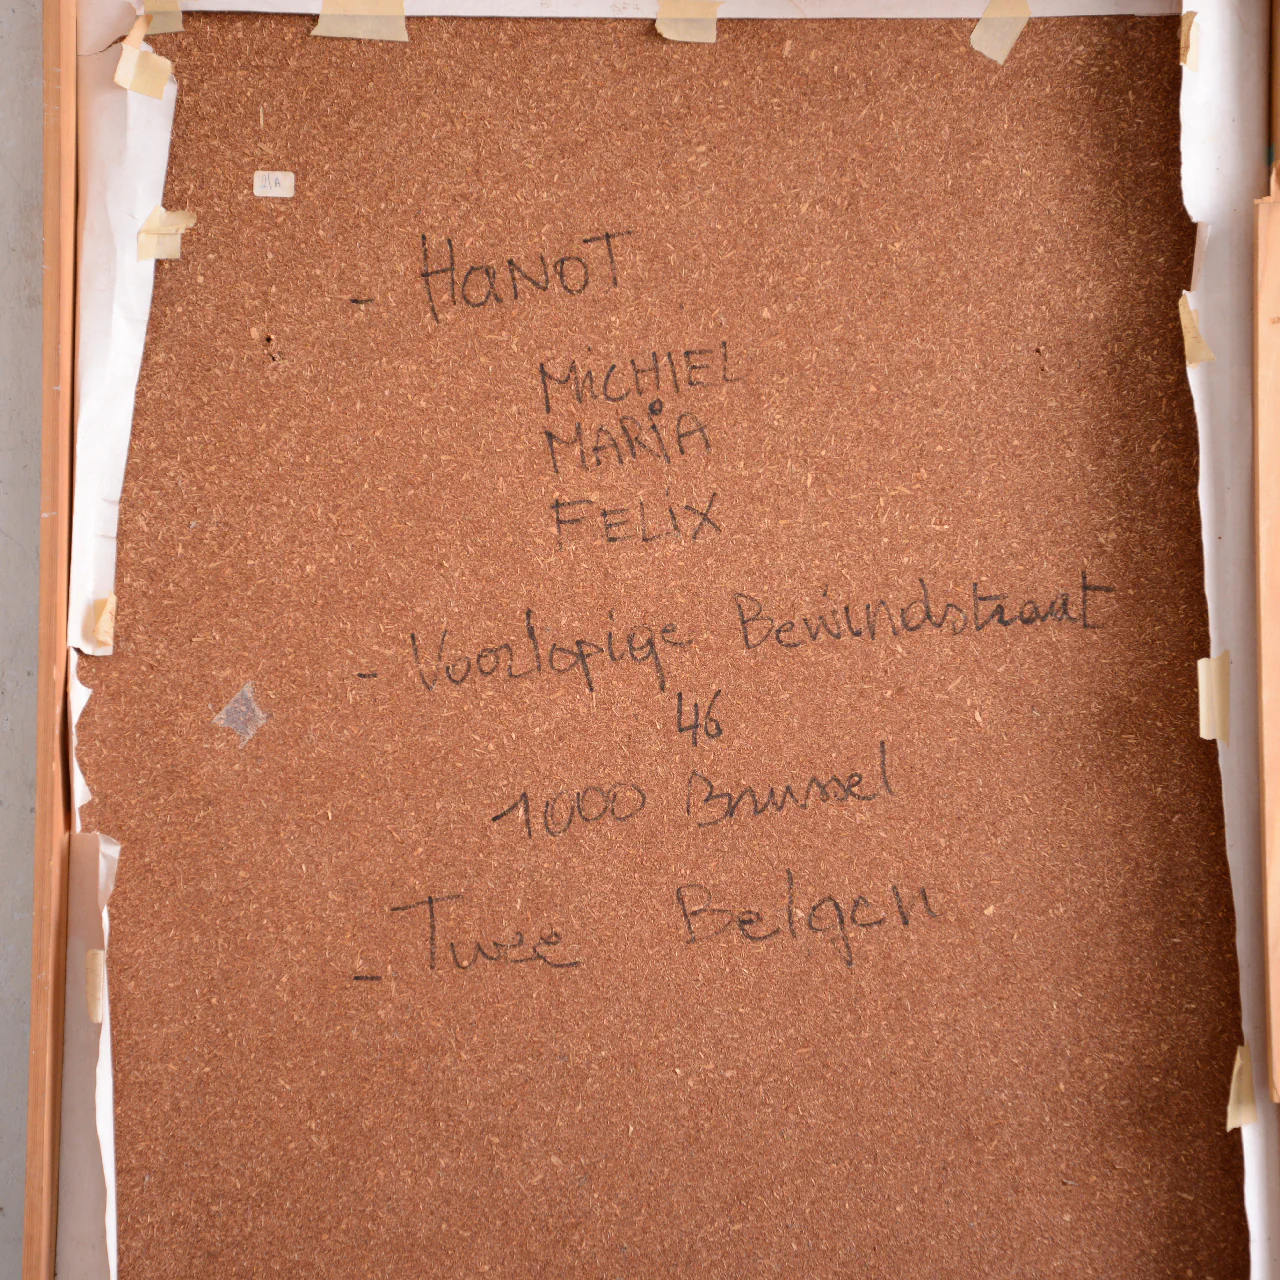 - HaNoT
MiCHIEL
MARiA
FELiX
- Voorlopige Bewindstraat
46
1000 Brussel
- Twee Belgen